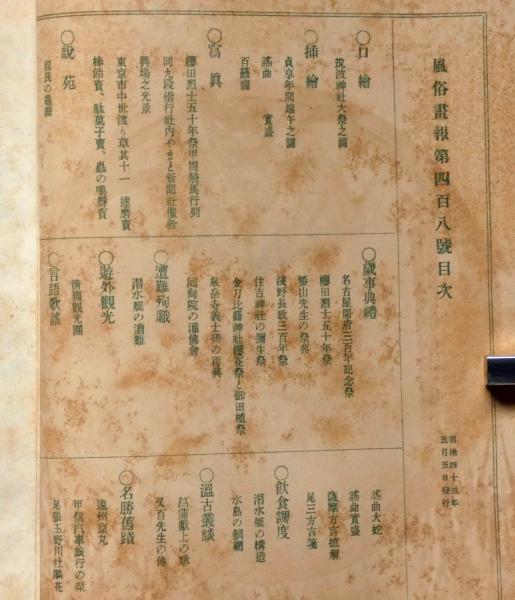 風俗畫報第四百八號目次
明治四十三年
五月五日發行
○口繪
筑波神社大祭之圖
○插繪
貞享年間端午之圖
謠曲 實盛
百鬮圖
○寫眞
櫻田烈士五十年祭甲冑騎馬行列
同九段偕行社内やまと新聞社催俗
興場之光景
東京市中世渡り草其十一 達磨賣
棒飴賣、駄菓子賣、蟲の鳴聲賣
○説苑
國民の
○歳事典禮
名古屋開府三百年記念祭
櫻田烈士五十年祭
蕃山先生の祭典
淺野長政三百年祭
住吉神社の彌生祭
金刀比羅神社櫻花祭と御田植祭
泉岳寺義士碑の再興
回向院の灌佛會
○遭難殉職
潜水艇の遭難
○遊外觀光
淸國觀光團
○言語歌謠
謠曲大蛇
謠曲實盛
薩摩方言
尾三方言箋
○飲食調度
潜水艇の構造
水島の鯛網
○溫古叢談
菖蒲獻上の歌
又百先生の傳
○名勝舊蹟
遠州京丸
甲信汽車旅行の栞
尾張玉野川